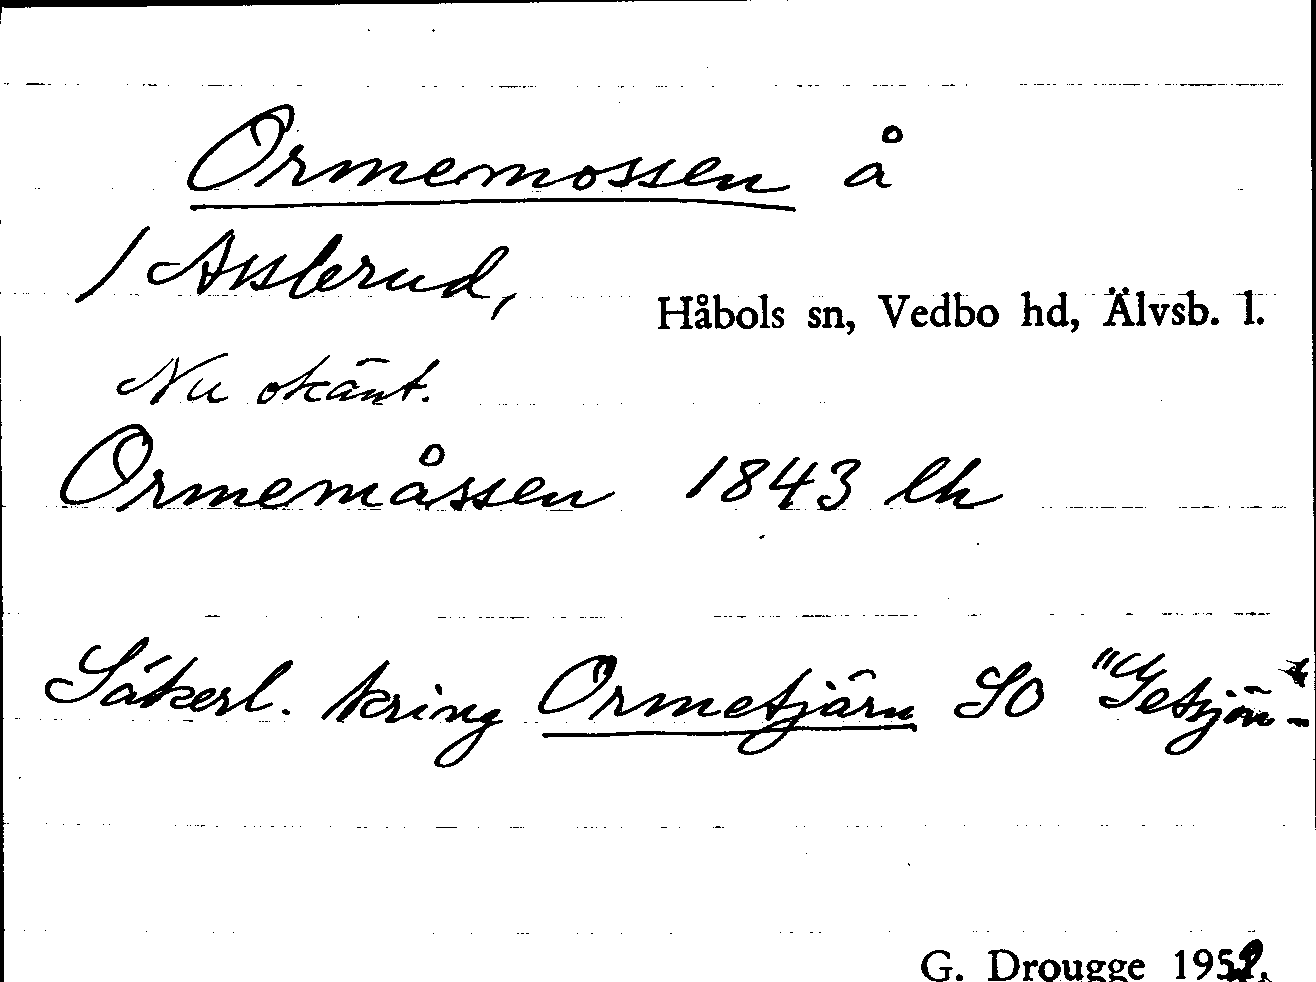 Ormemossen å
/ Asslerud,
Håbols sn, Vedbo hd, Älvsb. l.
Nu okänt.
Ormemåssen 1843 lh
Säkerl. kring Ormetjärn SO "Getsjön-
G. Drougge 1952.